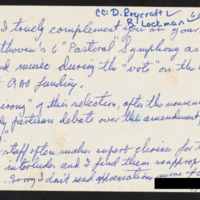 cc: D. Roycraft
R. Lockman
I truely complement you on your
thoven's 6 "Pastoral" Symphony as
nd music during the "vote" on the
funding.
wrong" of this selection, after the movement
partison debate over this amendment
staff often makes expert choices for
interludes and I find them
Sorry I don't send appreciation more